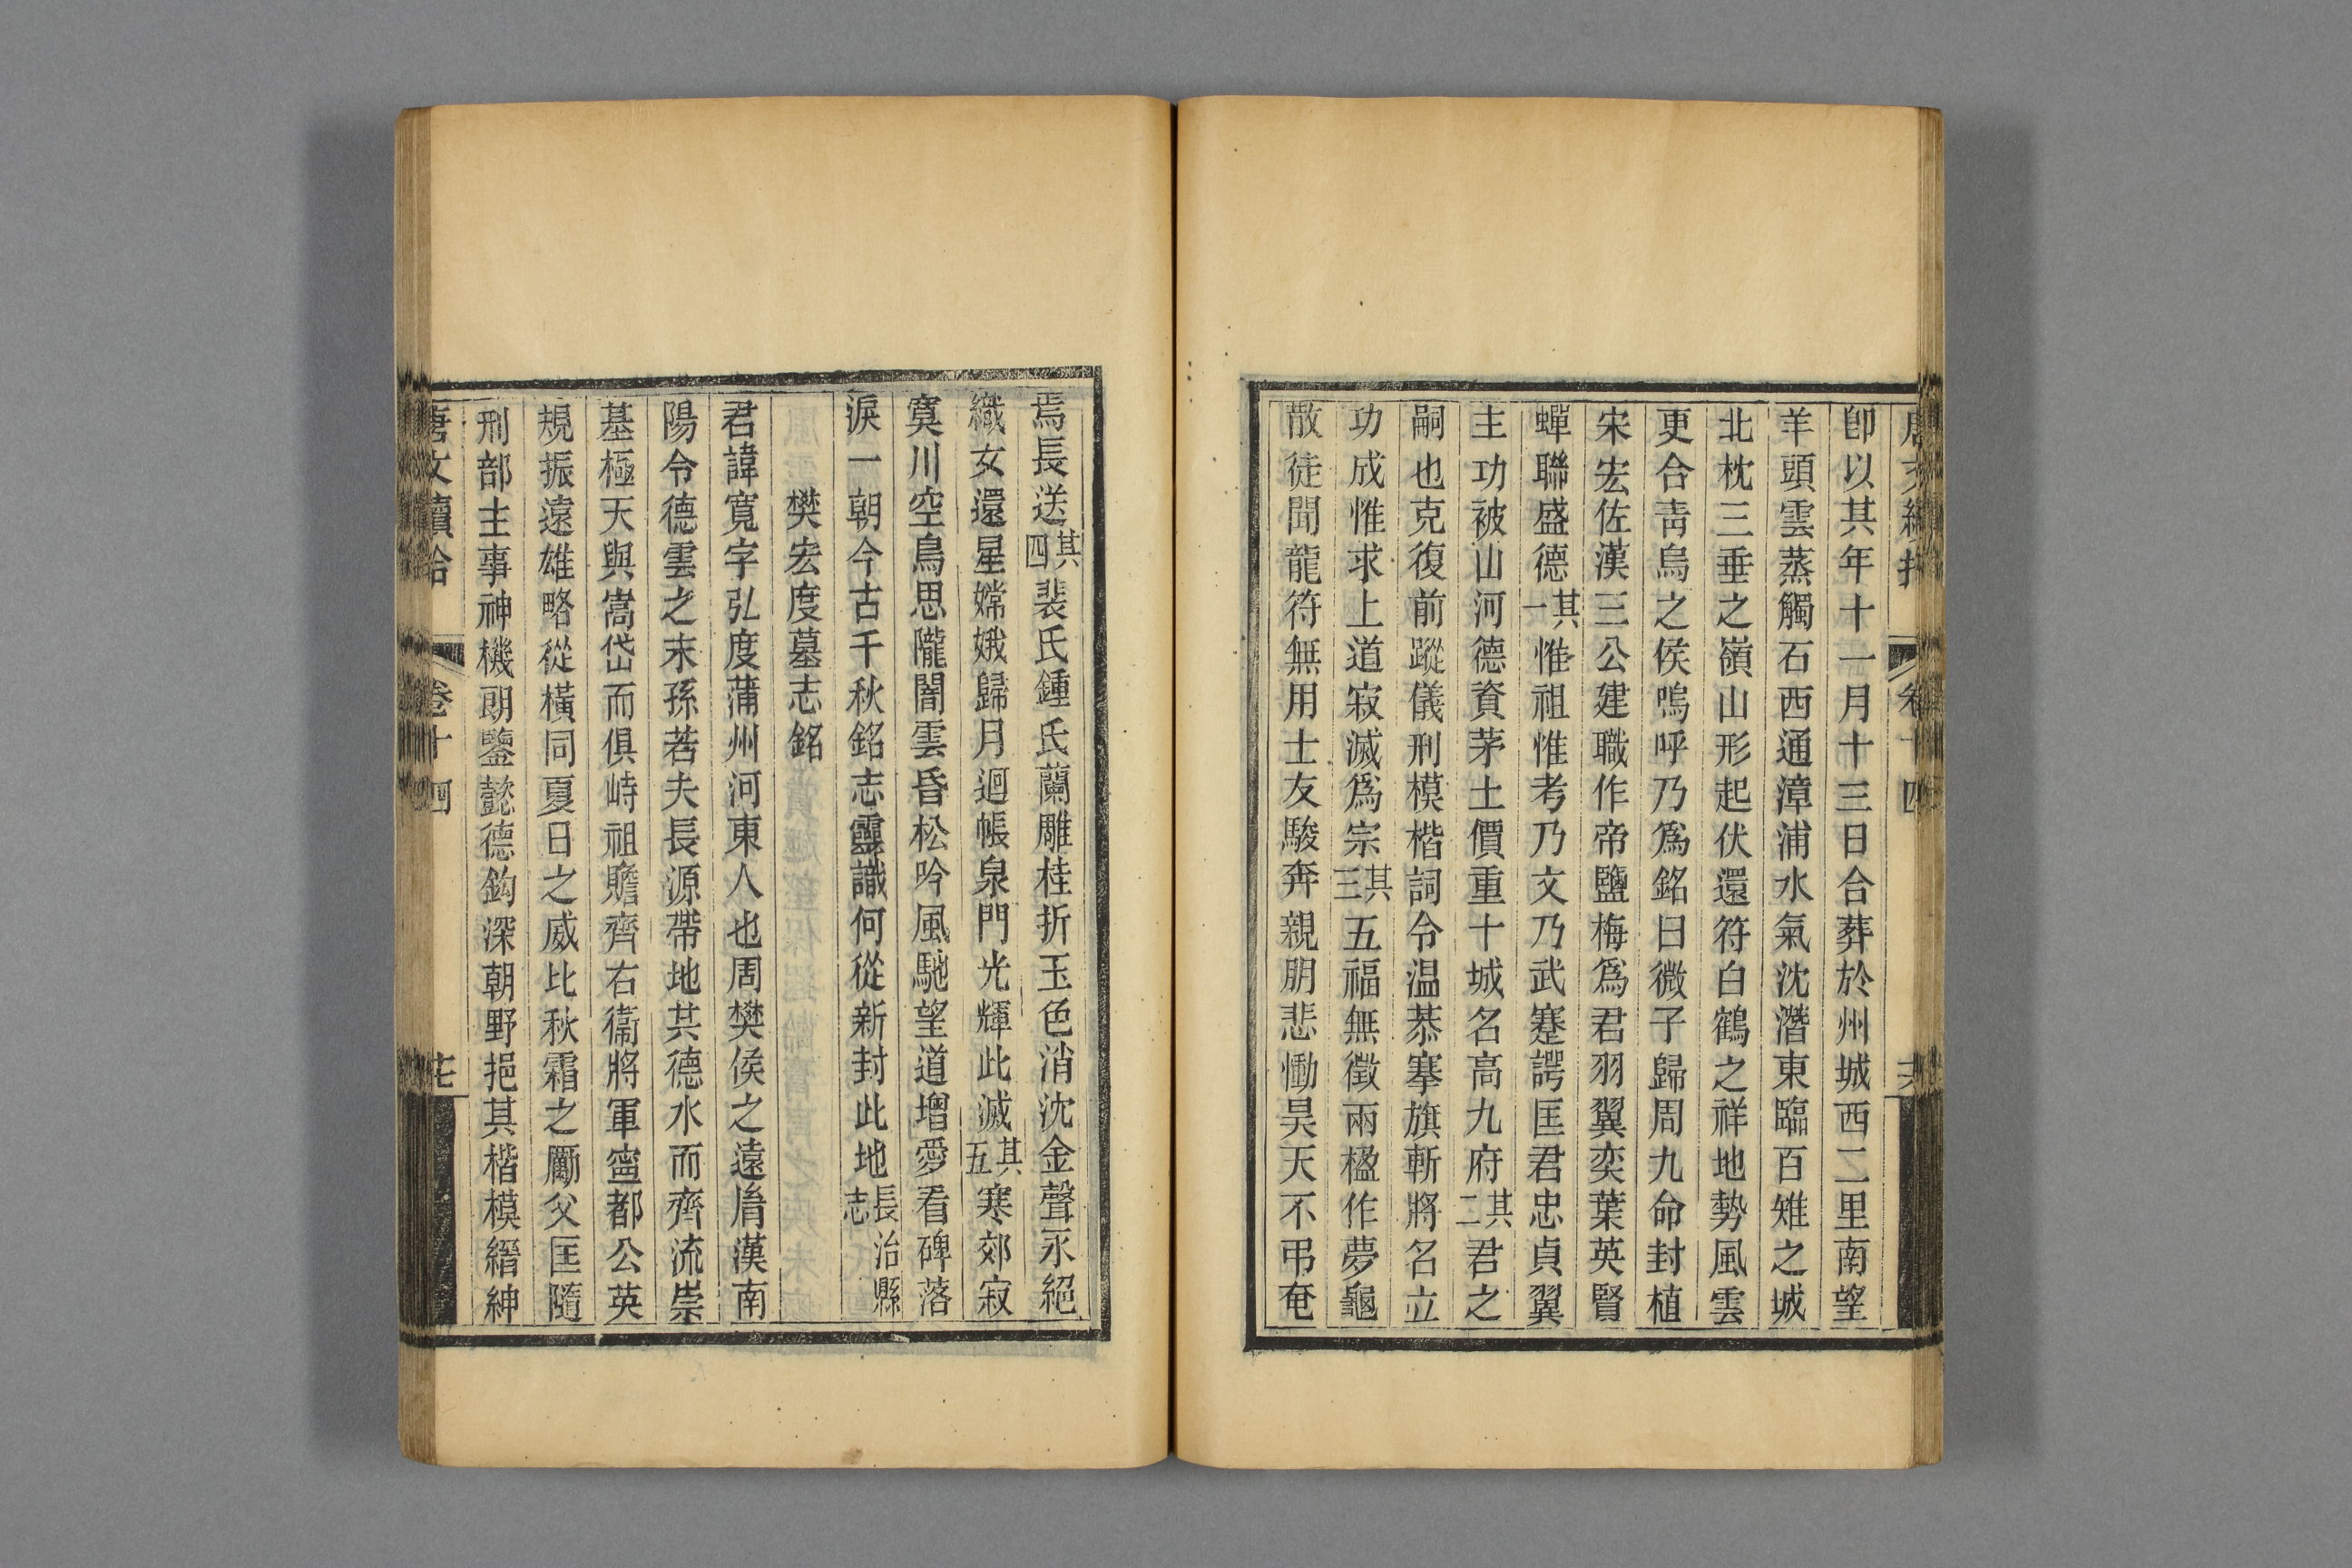 卽以其年十一月十三日合葬於州城西二里南望
羊頭雲蒸觸石西通漳浦水氣沈潛東臨百雉之城
北枕三垂之嶺山形起伏還符白鶴之祥地勢風雲
更合靑烏之侯嗚呼乃爲銘曰微子歸周九命封植
宋宏佐漢三公建職作帝鹽梅爲君羽翼奕葉英賢
蟬聯盛德其一惟祖惟考乃文乃武蹇諤匡君忠貞翼
主功被山河德資茅土價重十城名高九府其二君之
嗣也克復前蹤儀刑模楷詞令温恭搴旗斬將名立
功成惟求上道寂滅爲宗其三五福無徵兩楹作夢龜
散徒聞龍符無用士友駿奔親朋悲慟昊天不弔奄
焉長送其四裴氏鍾氏蘭雕桂折玉色消沈金聲永絕
織女還星嫦娥歸月迴帳泉門光輝此滅其五寒郊寂
寞川空鳥思隴闇雲昏松吟風馳望道增愛看碑落
淚一朝今古千秋銘志靈識何從新封此地長治縣志
樊宏度墓志銘
君諱寬字弘度蒲州河東人也周樊侯之遠胤漢南
陽令德雲之末孫若夫長源帶地共德水而齊流崇
基極天與嵩岱而俱峙祖贍齊右衞將軍寍都公英
規振遠雄略從橫同夏日之威比秋霜之勵父匡隨
刑部主事神機朗鑒懿德鈎深朝野挹其楷模縉紳
唐文續拾 卷十四 芒